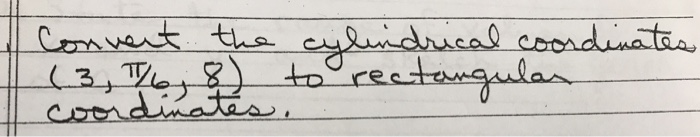 Convert the cylindrical coordinates
(3, π/6, 8) to rectangular
coordinates.